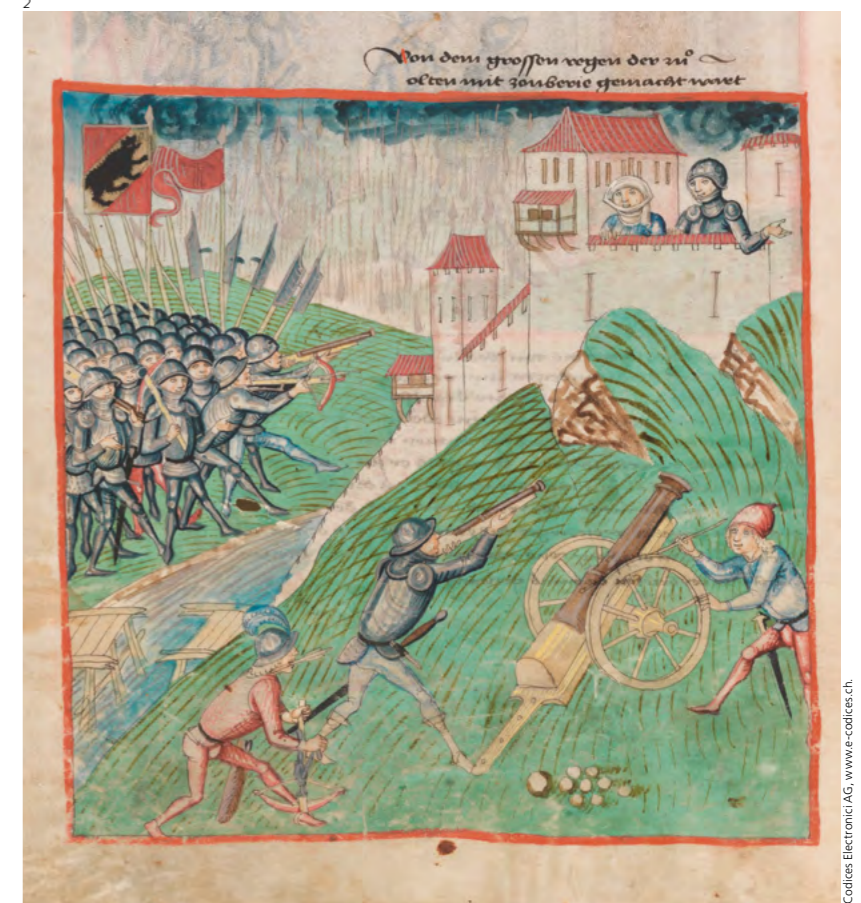 2
Von dem grossen regen der zuͦ
olten mit zouberie gemacht wart
Codices Electronici AG, www.e-codices.ch.